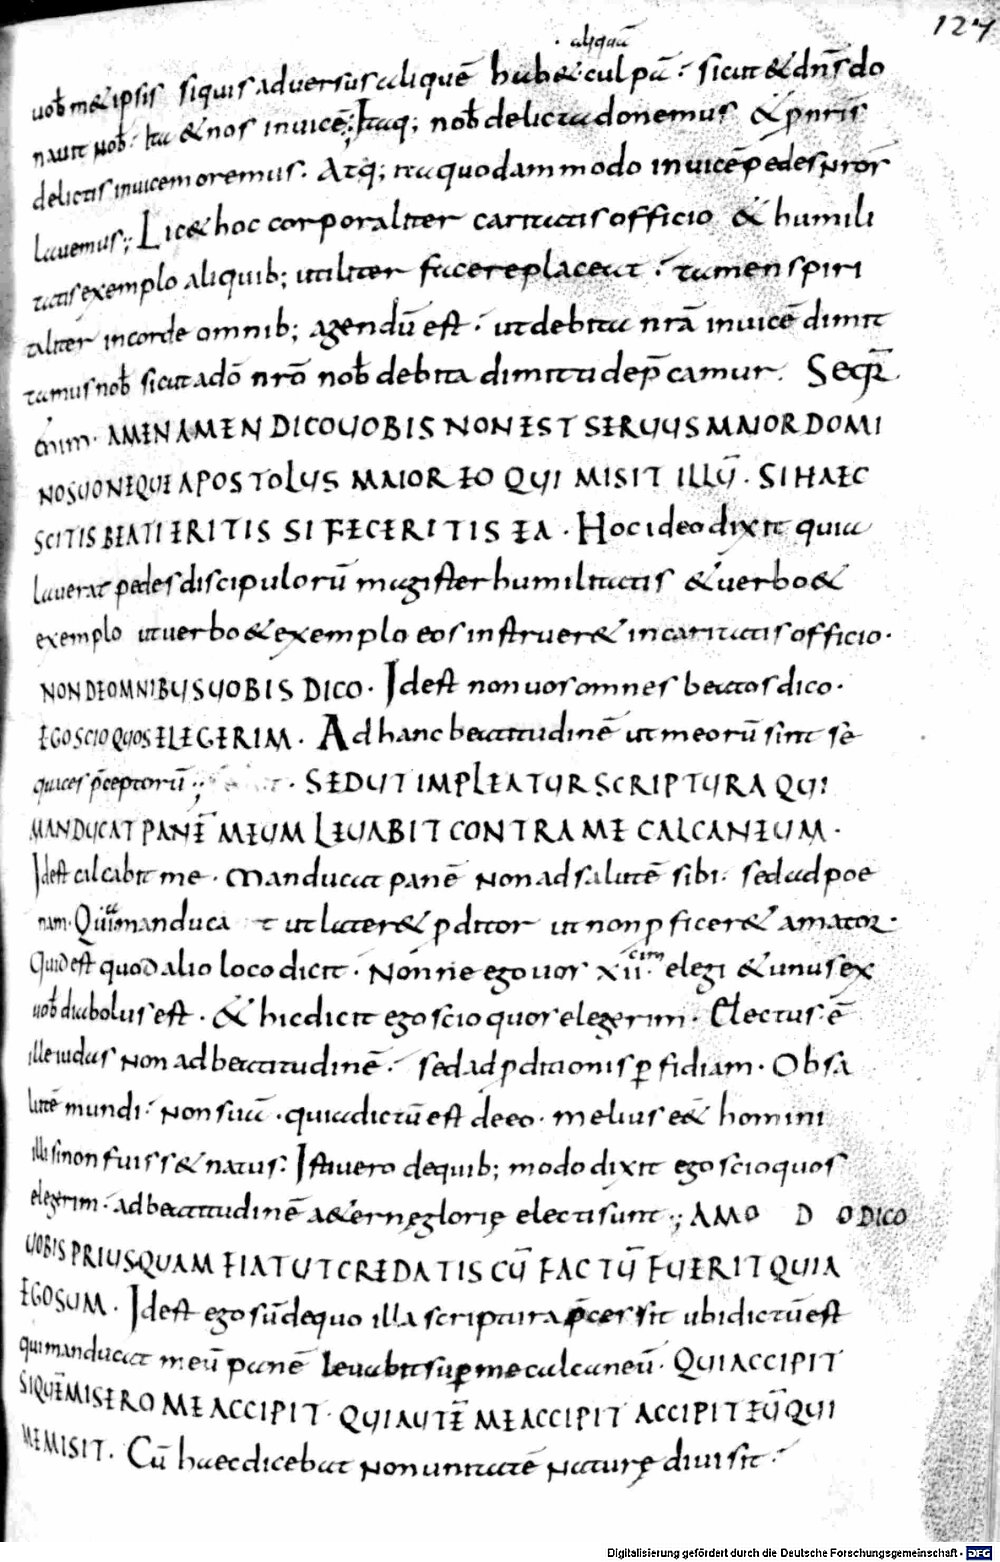 127
aliquā
uob̄ m&ipsis siquis aduersus aliquē hab& culpā · sicut & dn̄s do
nauit nob̄ · Ita & nos inuicē; Itaq; nob̄ delicta donemus & p̄ nr̄is
delictis inuicem oremus. Atq; ita quodammodo inuicē pedes nr̄or
lauemus; Lic& hoc corporaliter caritatis officio & humili
tatis exemplo aliquib; utiliter facere placeat · tamen spiri
taliter incorde omnib; agendū est · ut debita nr̄a inuicē dimit
tamus nob̄ sicut adō nrō nob̄ debita dimitti dep̄camur. Sequr̄
enim · AMEN AMEN DICO UOBIS NON EST SERUUS MAIOR DOMI
NO SUO NEQUE APOSTOLUS MAIOR EO QUI MISIT ILLŪ · SI HAEC
SCITIS BEATI ERITIS SI FECERITIS EA · Hoc ideo dixit quia
lauerat pedes discipulorū magister humilitatis & uerbo &
exemplo ut uerbo & exemplo eos instruer& incaritatis officio ·
NON DE OMNIBUS UOBIS DICO · Idest non uos omnes beatos dico ·
EGO SCIO QUOS ELEGERIM · Ad hanc beatitudinē ut meorū sint se
quaces p̄ceptorū · SED UT IMPLEATUR SCRIPTURA QUI
MANDUCAT PANĒ MEUM LEUABIT CONTRA ME CALCANEUM ·
Idest calcabit me · Manducat panē non ad salutē sibi · sed ad poe
nam · Qui manduca t ut later& p̄ditor ut non p̄ficer& amator ·
Quid est quod alio loco dicit · Nonne ego uos xii·cim elegi & unus ex
uob̄ diabolus est · & hic dicit ego scio quos elegerim · Electus ē
ille iudas non ad beatitudinē · sed ad p̄ditionis p̄fidiam · Ob sa
lutē mundi · non suā · quia dictū est deeo · melius eēt homini
illi si non fuiss& natus · Isti uero dequib; modo dixit ego scio quos
elegerim · ad beatitudinē aet&ernę glorię electi sunt ·; AMO D O DICO
UOBIS PRIUSQUAM FIAT UT CREDATIS CŪ FACTŪ FUERIT QUIA
EGO SUM · Idest ego sū dequo illa scriptura p̄cessit ubi dictū est
qui manducat meū panē leuabit sup̄ me calcaneū · QUI ACCIPIT
SI QUĒ MISERO ME ACCIPIT · QUI AUTĒ ME ACCIPIT ACCIPIT EŪ QUI
ME MISIT. Cū haec dicebat non unitatē naturę diuisit ·
Digitalisierung gefördert durch die Deutsche Forschungsgemeinschaft - DFG